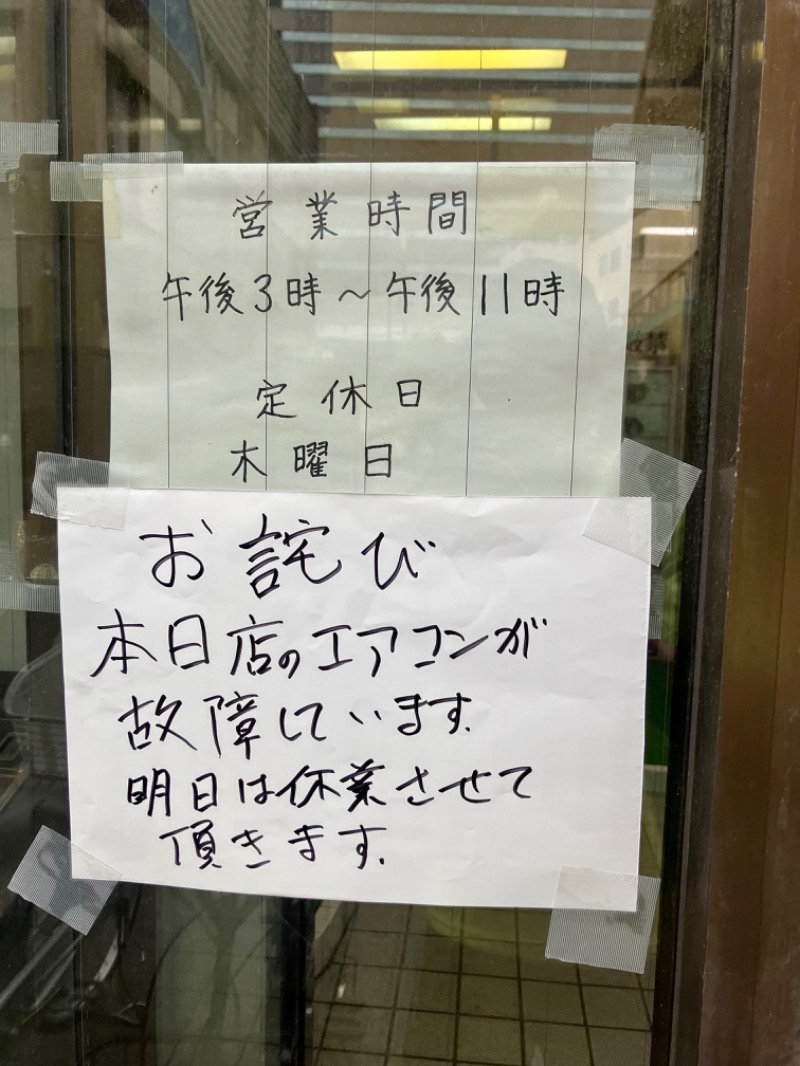 営業時間
午後3時～午後11時
定休日
木曜日
お詫び
本日店のエアコンが
故障しています.
明日は休業させて
頂きます.